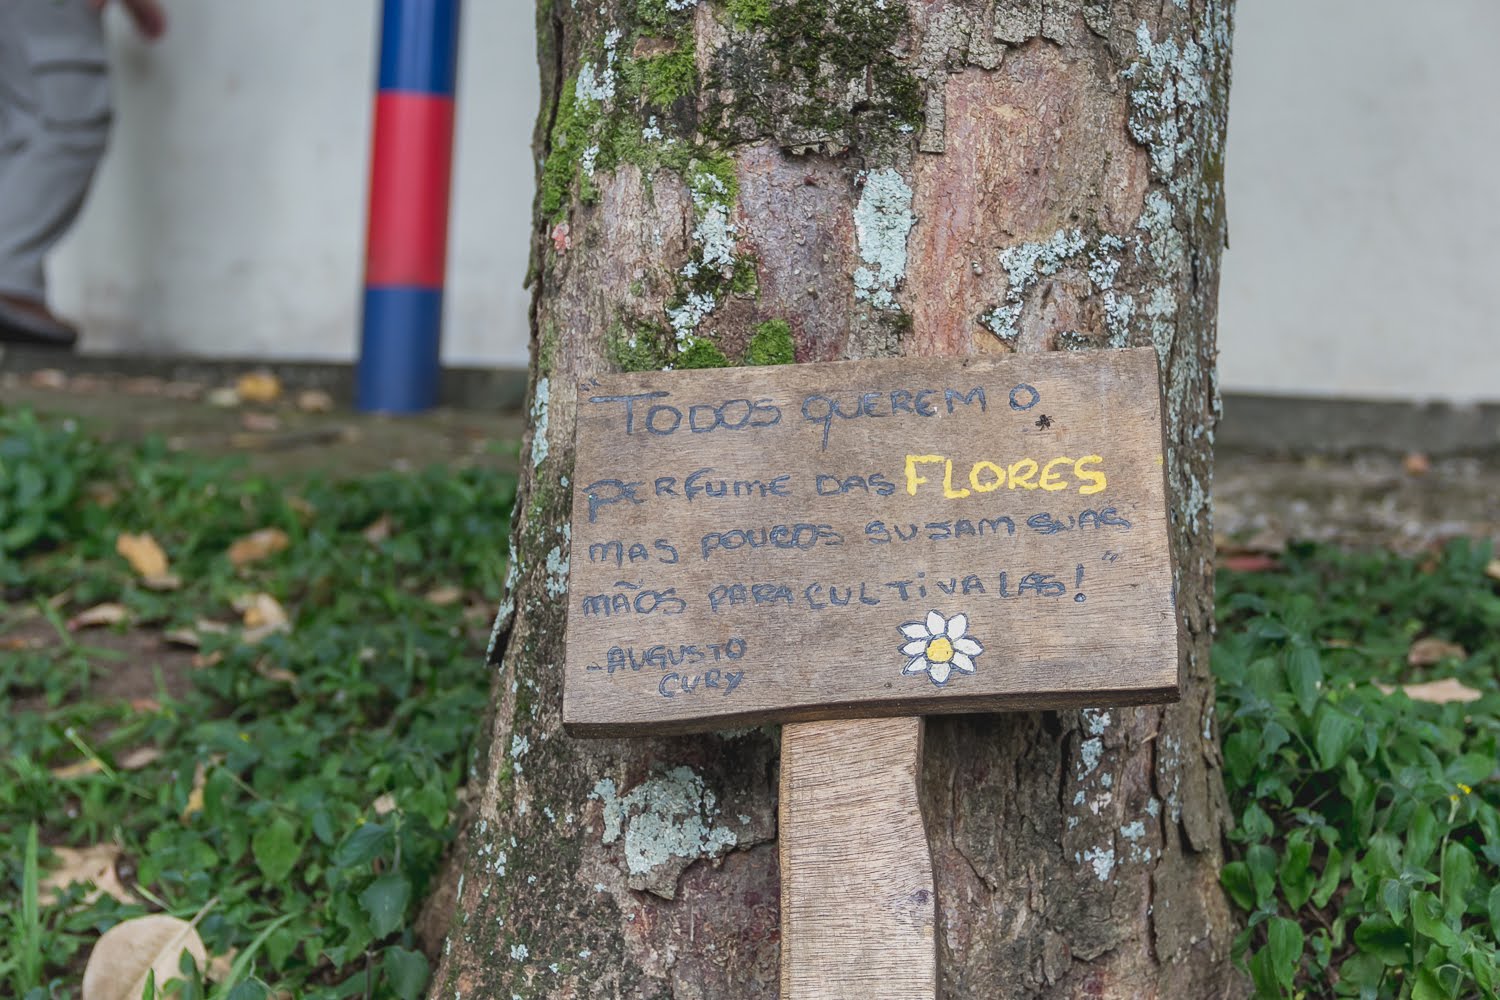 "TODOS QUEREM O
PERFUME DAS FLORES
MAS POUCOS SUJAM SUAS
MÃOS PARA CULTIVALAS!"
- AUGUSTO
CURY